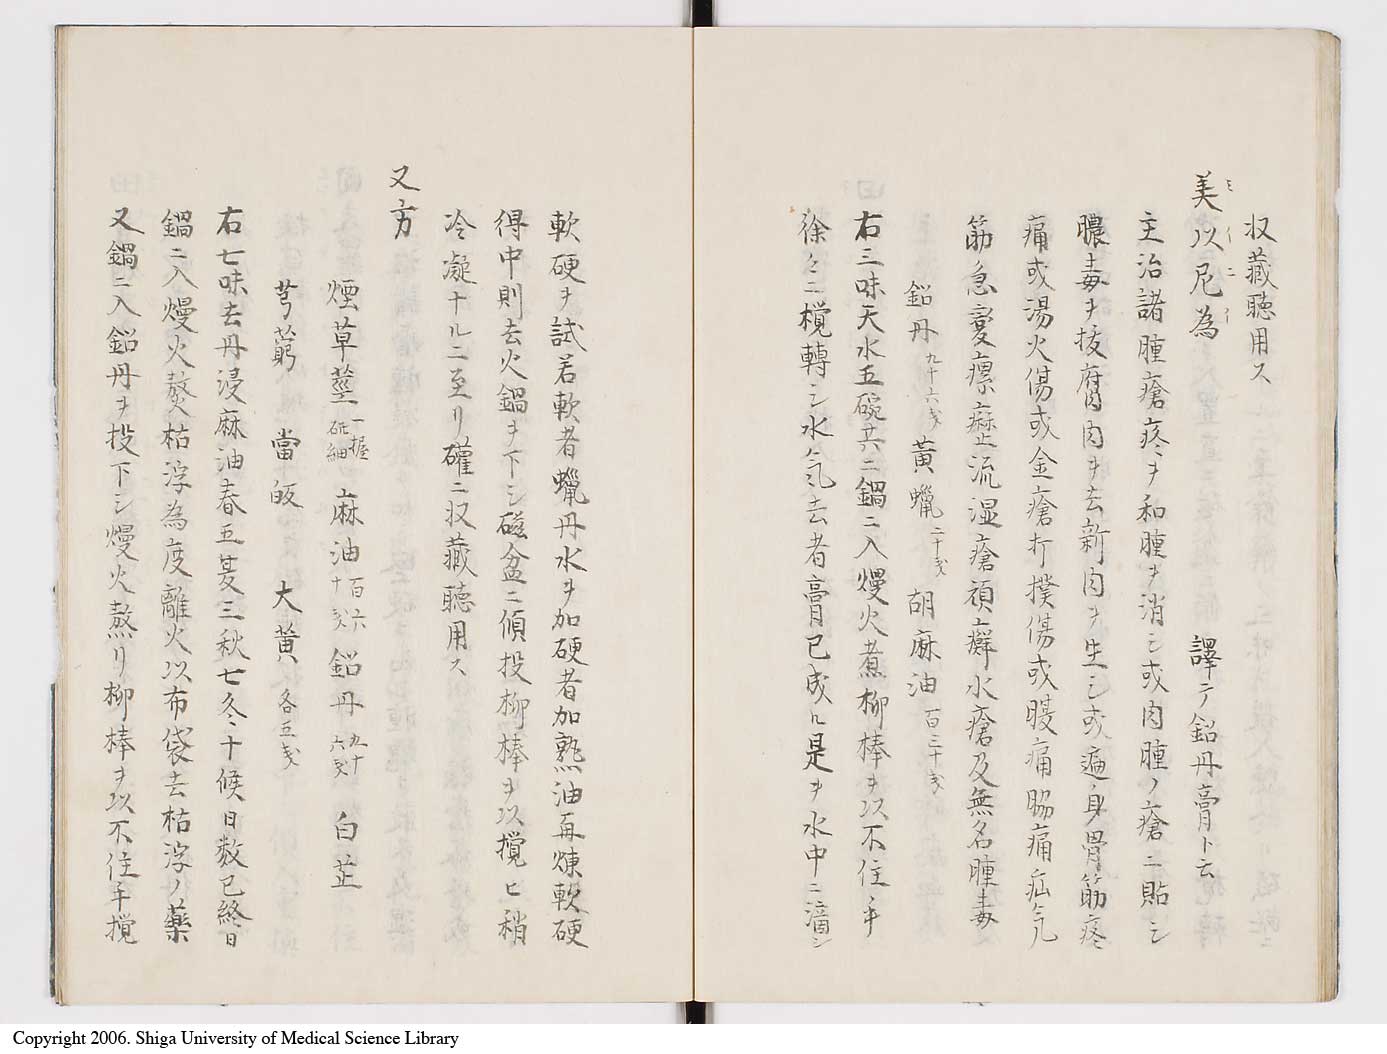 収蔵聴用ス
美以尼為 譯テ鉛丹膏ト云
ミイニイ
主治諸腫瘡疼ヲ和腫ヲ消シ或肉腫ノ瘡ニ貼シ
膿毒ヲ抜腐肉ヲ去新肉ヲ生シ或遍身骨筋疼
痛或湯火傷或金瘡打撲傷或腰痛脇痛疝气
筋急攣瘰麻痺流湿瘡頑癬水瘡及無名腫毒
鉛丹 九十六戔 黄蠟 二十戔 胡麻油 百三十戔
右三味天水五碗共ニ鍋ニ入熳火煮柳棒ヲ以不住手
徐々ニ攪轉シ水气去者膏已成ル是ヲ水中ニ滴シ
軟硬ヲ試若軟者蠟丹水ヲ加硬者加熟油再煉軟硬
得中則去火鍋ヲ下シ磁盆ニ傾投柳棒ヲ以攪ヒ稍
冷凝ナルニ至リ礶ニ収蔵聴用ス
又方
煙草莖 一握 研細 麻油 百六十戔 鉛丹 九十六戔 白芷
芎藭 當皈 大黄 各五戔
右七味去丹浸麻油春五夏三秋七冬十候日数已終日
鍋ニ入熳火熬枯浮為度離火以布袋去枯浮ノ藥
又鍋ニ入鉛丹ヲ投下シ熳火熬リ柳棒ヲ以不住手攪
Copyright 2006. Shiga University of Medical Science Library